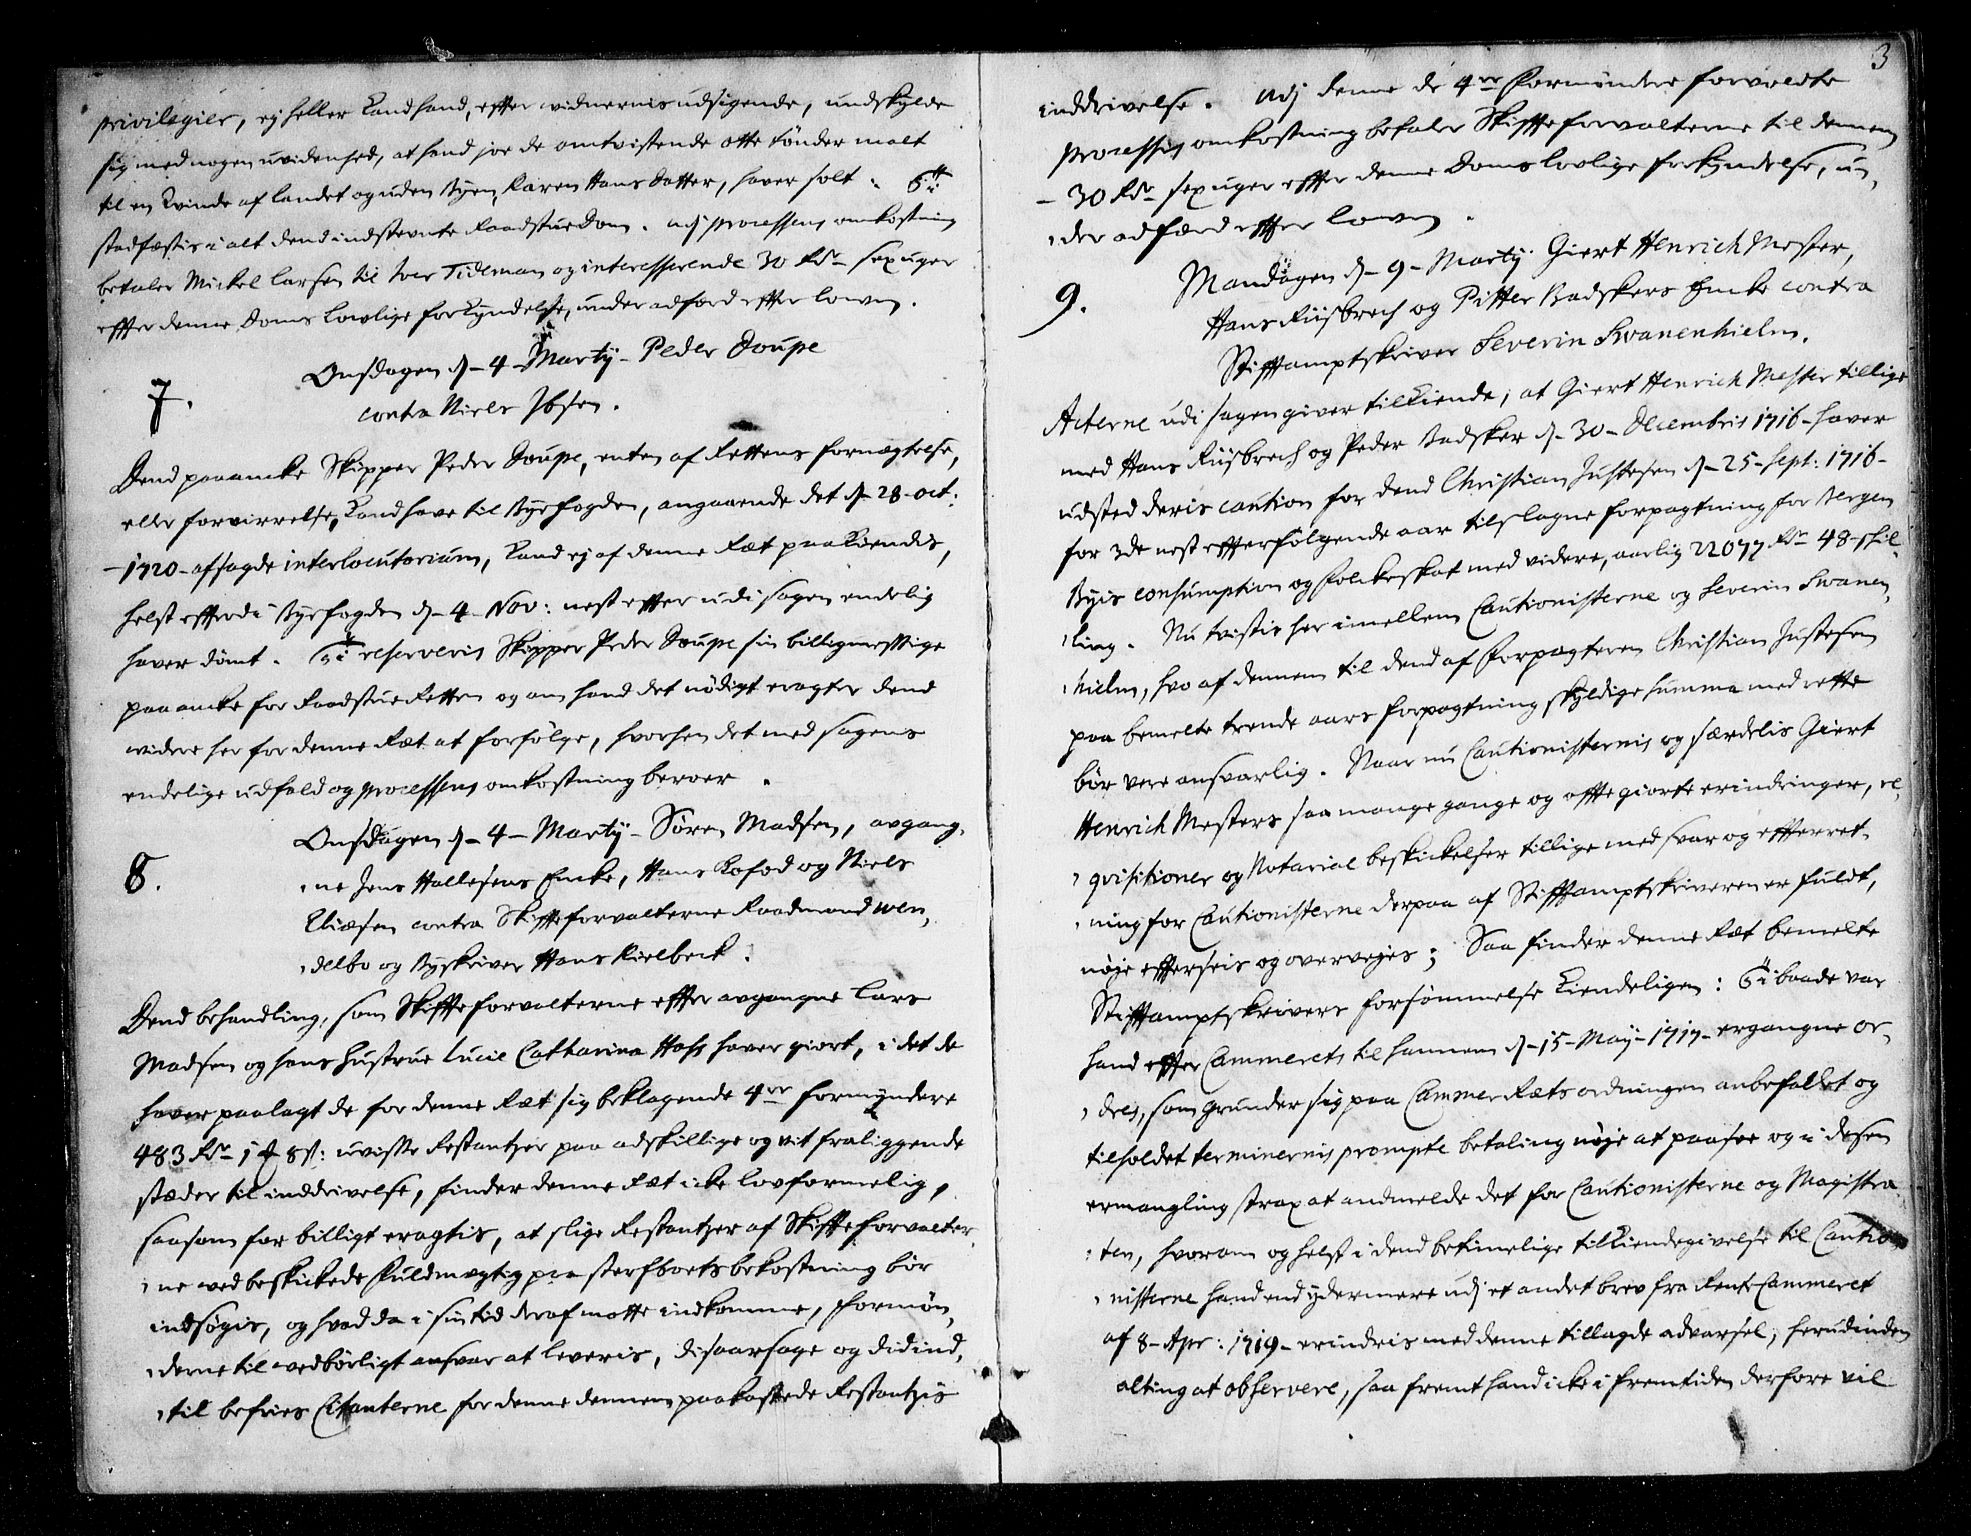 privilegier, ej heller kand hand, effter widnernis udsigende, undskylde
sig med nogen uvidenhed, at hand jo de omtvistende otte tønder malt
til en Kvinde af landet og uden Byen, Karen Hans datter, haver solt. Ti
stadfæstis i alt dend indstevnte Raadstue Dom. udj processens omkostning
betaler Mickel Larsen til Iver Tideman og interesserende 30 Rdr sex uger
effter denne Doms lovlige forkyndelse, under adfærd effter loven.
7.
Onsdagen d. 4 Marty Peder Soupe
contra Niels Ibsen.
Dend paaancke Skipper Peder Soupe, enten af Rettens fornegtelse,
eller forvirrelse, kand have til Byefogden, angaaende det d. 28 oct:
1720 afsagde interlocutorium, kand ej af denne Ræt paakiendis,
helst effterdi Byefogden d. 4 Nov: nest effter udi sagen endelig
haver dømt. Ti reserveris Skipper Peder Soupe sin billigmessige
paaancke for Raadstue Retten og om hand det nødigt eragter dend
widere her for denne Ræt at forfølge, hvorhen det med sagens
endelige udfald og processens omkostning beroer.
8.
Onsdagen d. 4 Marty Søren Madsen, avgang-
ne Jens Hallesens Encke, Hans Kofod og Niels
Eliæsen contra Skiffteforvalterne Raadmand Wen-
delbo og Byskriver Hans Kielbeck.
Dend behandling, som Skiffteforvalterne effter avgangne Lars
Madsen og hans hustrue Lucie Catharina Hass haver giort, i det de
haver paalagt de for denne Ræt sig beklagende 4re formyndere
483 Rdr 1 ₰ 8 s: uvisse Restantzer paa adskillige og vit fraliggende
stæder til inddrivelse, finder denne Ræt icke lovformelig,
saasom for billigt eragtis, at slige Restantzer af Skiffteforvalter-
ne ved beskickede Fuldmegtig paa sterfboets bekostning bør
indsøgis, og hvad da i sin tid deraf motte indkomme, Formøn-
derne til wedbørligt ansvar at leveris, disaarsage og did ind-
til befries Citanterne for denne dennem paakastede Restantzis
3
inddrivelse. udj denne de 4re Formyndere forvoldte
processis omkostning betaler Skiffteforvalterne til dennem
30 Rdr sex uger effter denne Doms lovlige forkyndelse, un-
der adfærd effter loven.
9.
Mandagen d. 9 Marty Giert Henrich Mester,
Hans Riisbrech og Pitter Badskers Encke contra
Stifftamptskriver Severin Swanenhielm.
Acterne udi sagen giver tilkiende, at Giert Henrich Mester tillige
med Hans Riisbrech og Peder Badsker d. 30 Decembris 1716 haver
udsted deris caution for dend Christian Justesen d. 25 Sept: 1716
for 3de nest effterfølgende aar tilslagne forpagtning for Bergen
Byis consumption og folckeskat med videre, aarlig 22077 Rdr 48 skil-
ling. Nu tvistis her imellem Cautionisterne og Severin Swanen-
hielm, hvo af dennem til dend af Forpagteren Christian Justesen
paa bemelte trende aars forpagtning skyldige summa med rette
bør vere ansvarlig. Naar nu Cautionisternis og særdelis Giert
Henrich Mesters saa mange gange og offte giorte erindringer, re-
qvisitioner og Notarial beskickelser tillige med svar og effterret-
ning for Cautionisterne derpaa af Stifftamptskriveren er fuldt,
nøje effterseis og overvejes; Saa finder denne Ræt bemelte
Stifftamptskrivers forsømmelse kiendeligen: Ti baade var
hand effter Cammerets til hannem d. 15 May 1717 ergangne or-
dres, som grunder sig paa Cammer Rætsordningen anbefallet og
tilholdet terminernis prompte betaling nøje at paasee og i desen
ermangling strax at andmelde det for Cautionisterne og Magistra-
ten, hvorom og helst i dend betimelige tilkiendegivelse til Cautio-
nisterne hand end ydermere udj et andet brev fra Rente Cammeret
af 8 Apr: 1719 erindris med denne tillagde advarsel, herudinden
alting at observere, saa fremt hand icke i fremtiden derfore vil